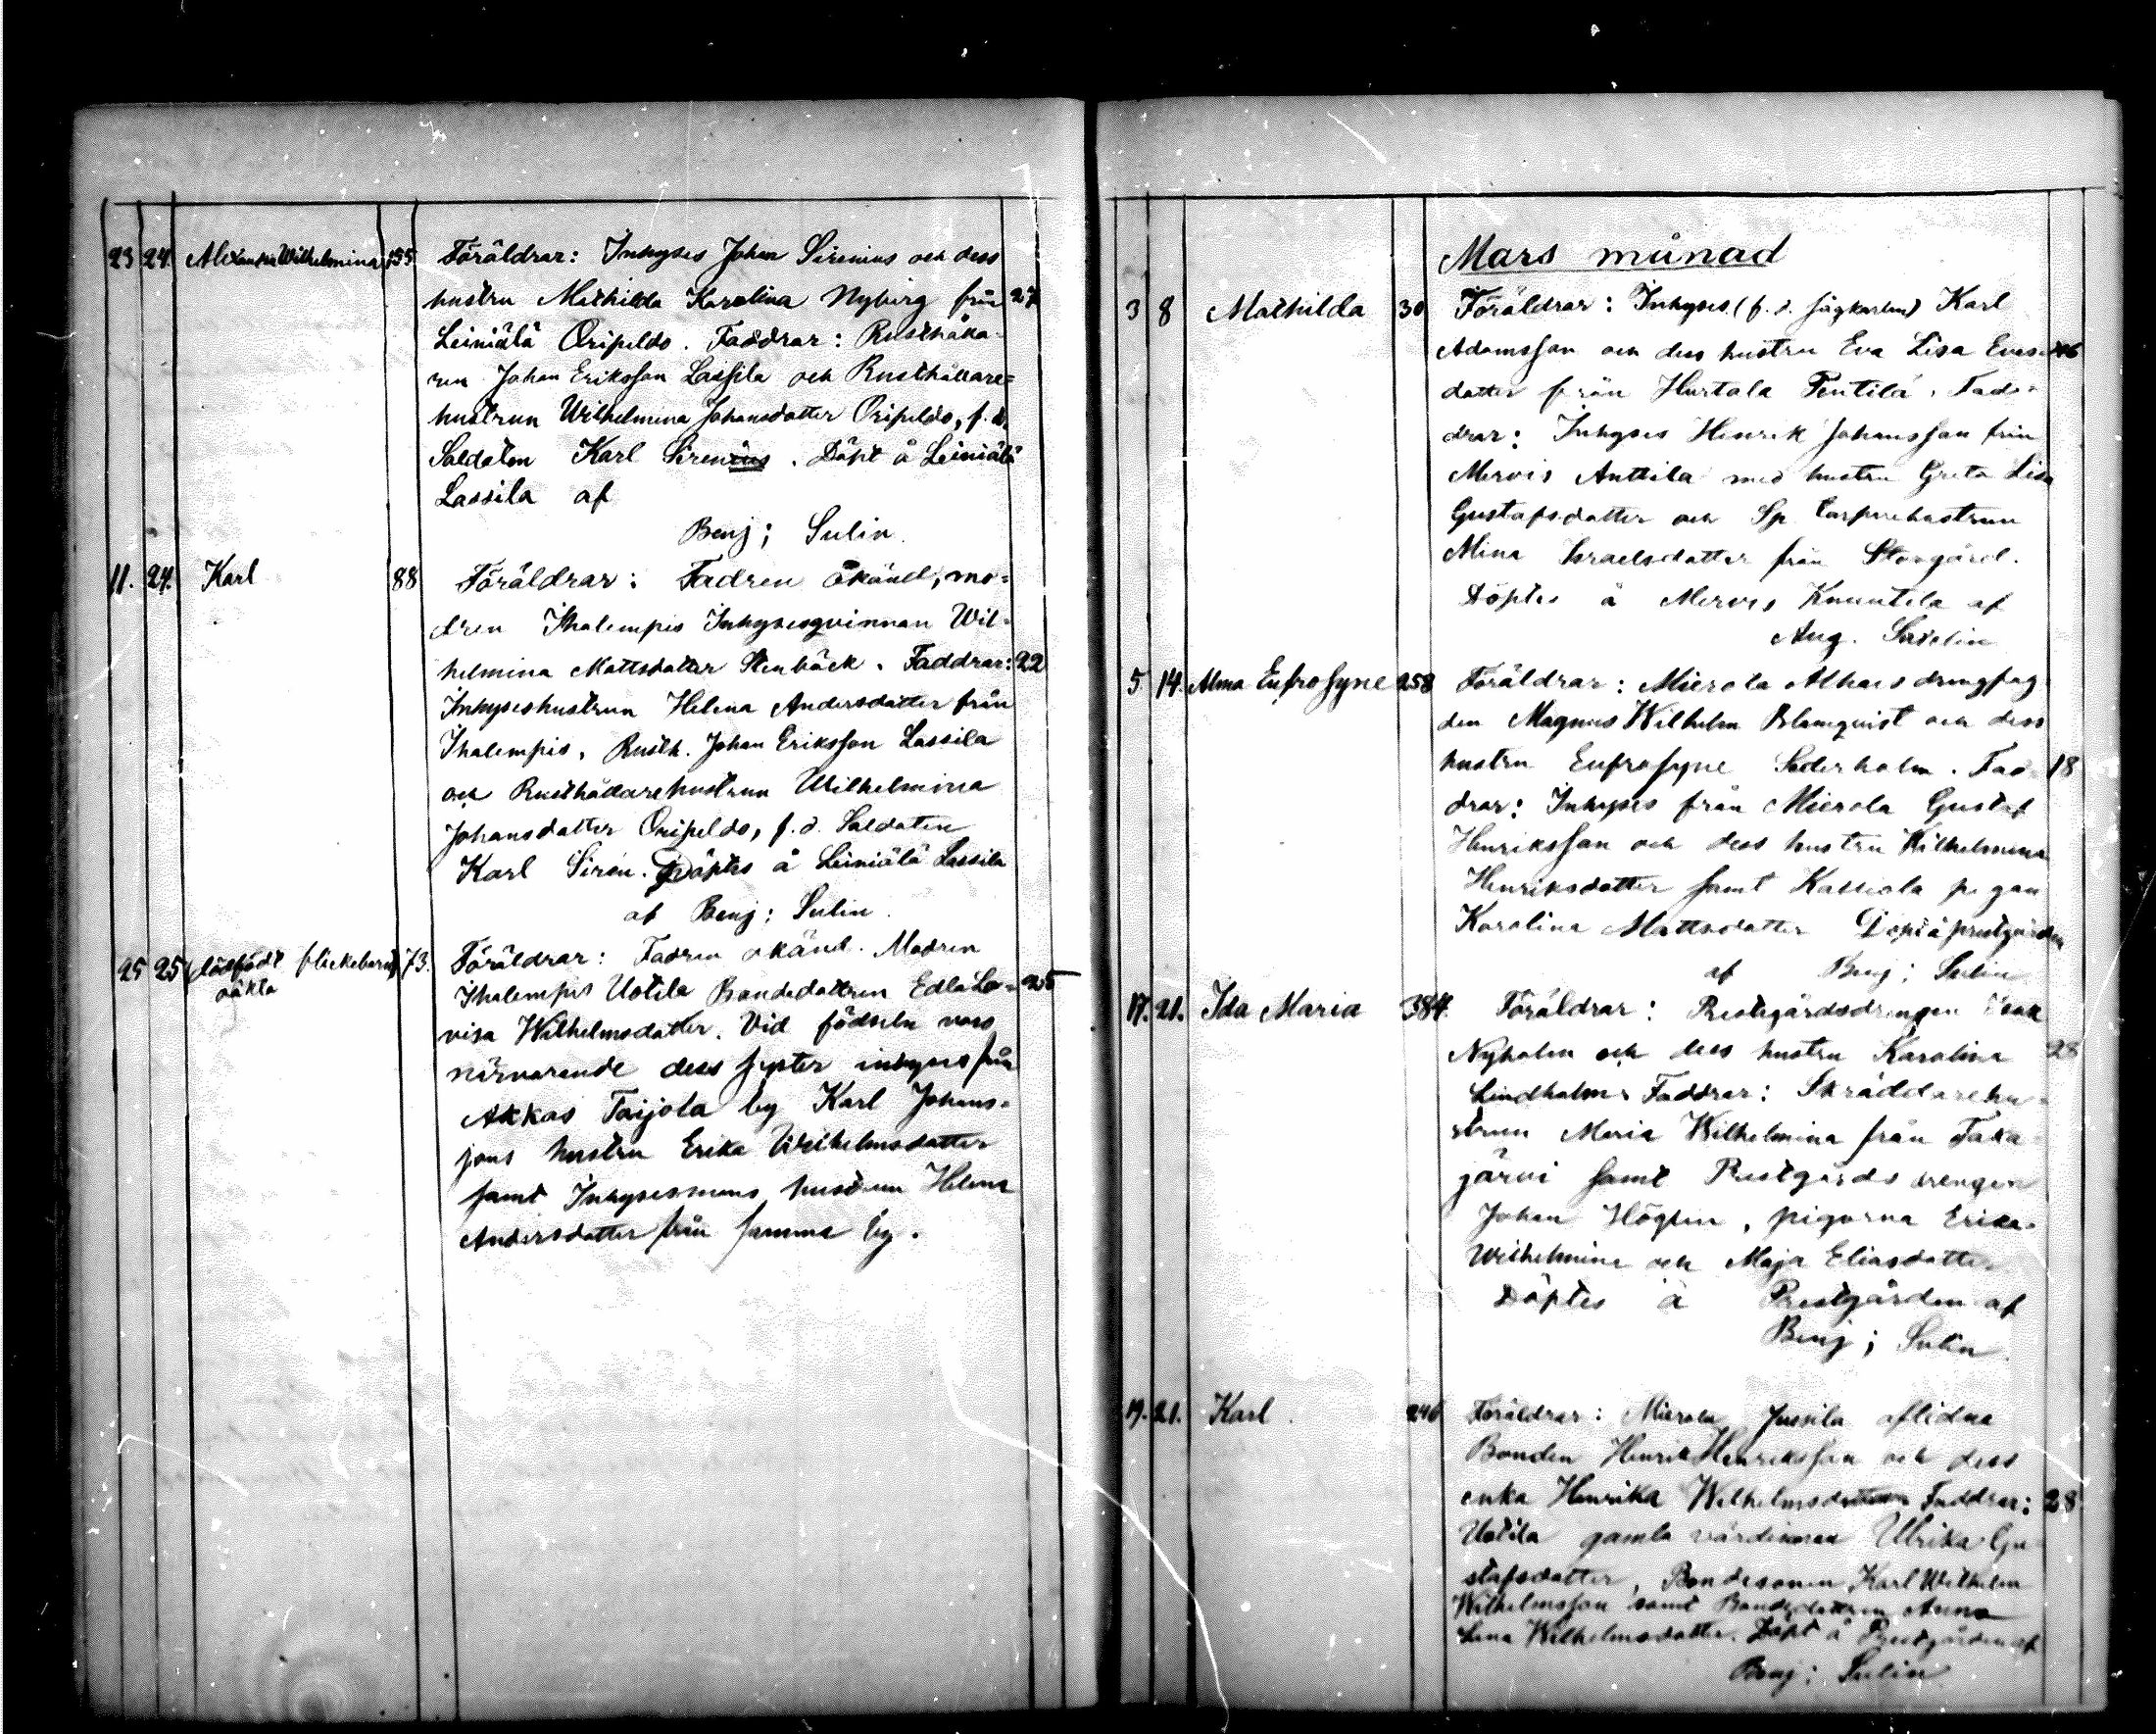 23 24. Alexandra Wilhelmina 155 Föräldrar: Inhyses Johan Sirenius och dess
hustru Mathilda Karolina Nyberg från 27
Leiniälä Oripeldo. Faddrar: Rusthålla-
ren Johan Eriksson Lassila och Rusthållare=
hustrun Wilhelmina Johansdotter Oripeldo, f.d.
Soldaten Karl Sirenius. Döpt å Leiniälä
Lassila af
Benj; Sulin.
11. 24. Karl 88 Föräldrar: Fadren okänd, mo=
dren Ihalempis Inhysesqvinnan Wil=
helmina Mattsdotter Stenbäck. Faddrar: 22
Inhyseshustrun Helena Andersdotter från
Ihalempis, Rusth. Johan Eriksson Lassila
och Rusthållarehustrun Wilhelmina
Johansdotter Oripeldo, f.d. Soldaten
Karl Sirén. Döptes å Leiniälä Lassila
af Benj; Sulin.
25 25 (dödfödt flickebarn) 73. Föräldrar: Fadren okänd. Modren
oäkta
Ihalempis Uotila Bondedottren Edla Lo- 25
visa Wilhelmsdotter. Vid födseln voro
närvarande dess syster inhyses från
Akkas Taijola by Karl Johans-
sons hustru Erika Wilhelmsdotter
samt Inhysesmans hustrun Helena
Andersdotter från samma by.
Mars månad
3 8 Mathilda 30 Föräldrar: Inhyses (f.d. Karl
Adamsson och dess hustru Eva Lisa 46
dotter från Hurtala Pentilä. Fad-
drar: Inhyses Henrik Johansson från
Mervis Anttila med hustru Greta Lisa
Gustafsdotter och Sp. Torparehustrun
Mina Israelsdotter från Storgård.
Döptes å Mervis Knuutila af
Aug.
5 14. Alma Eufrosyne 258 Föräldrar: Mierola Alhais drengfog
den Magnus Wilhelm Blomqvist och dess
hustru Eufrosyne Söderholm. Fad- 18
drar: Inhyses från Mierola Gustaf
Henriksson och dess hustru Wilhelmina
Henriksdotter samt Kassiala pigan
Karolina Mattsdotter Döpt å prestgården
af Benj; Sulin
17. 21. Ida Maria 384. Föräldrar: Prestgårdsdrengen Isak
Nyholm och dess hustru Karolina 28
Lindholm. Faddrar: Skräddarehu-
strun Maria Wilhelmina från Taka
järvi samt Prestgårds drengen
Johan Högben, pigorna Erika
Wilhelmina och Maja Eliasdotter
Döptes å Prestgården af
Benj; Sulin.
19. 21. Karl. 246 Föräldrar: Mierola Jussila aflidna
Bonden Henrik Henriksson och dess
enka Henrika Wilhelmsdotter Faddrar: 28
Uotila gamla värdinnan Ulrika Gu
stafsdotter, Bondesonen Karl Wilhelm
Wilhelmsson samt Bondedottren Anna
Lena Wilhelmsdotter. Döpt å Prestgården af
Benj; Sulin